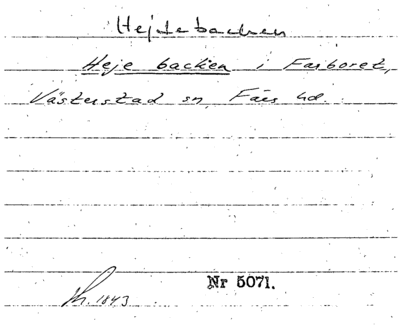 Hejdebacken
Heje backen i Farboret,
Västerstad sn, Färs hd.
Nr 5071.
1843